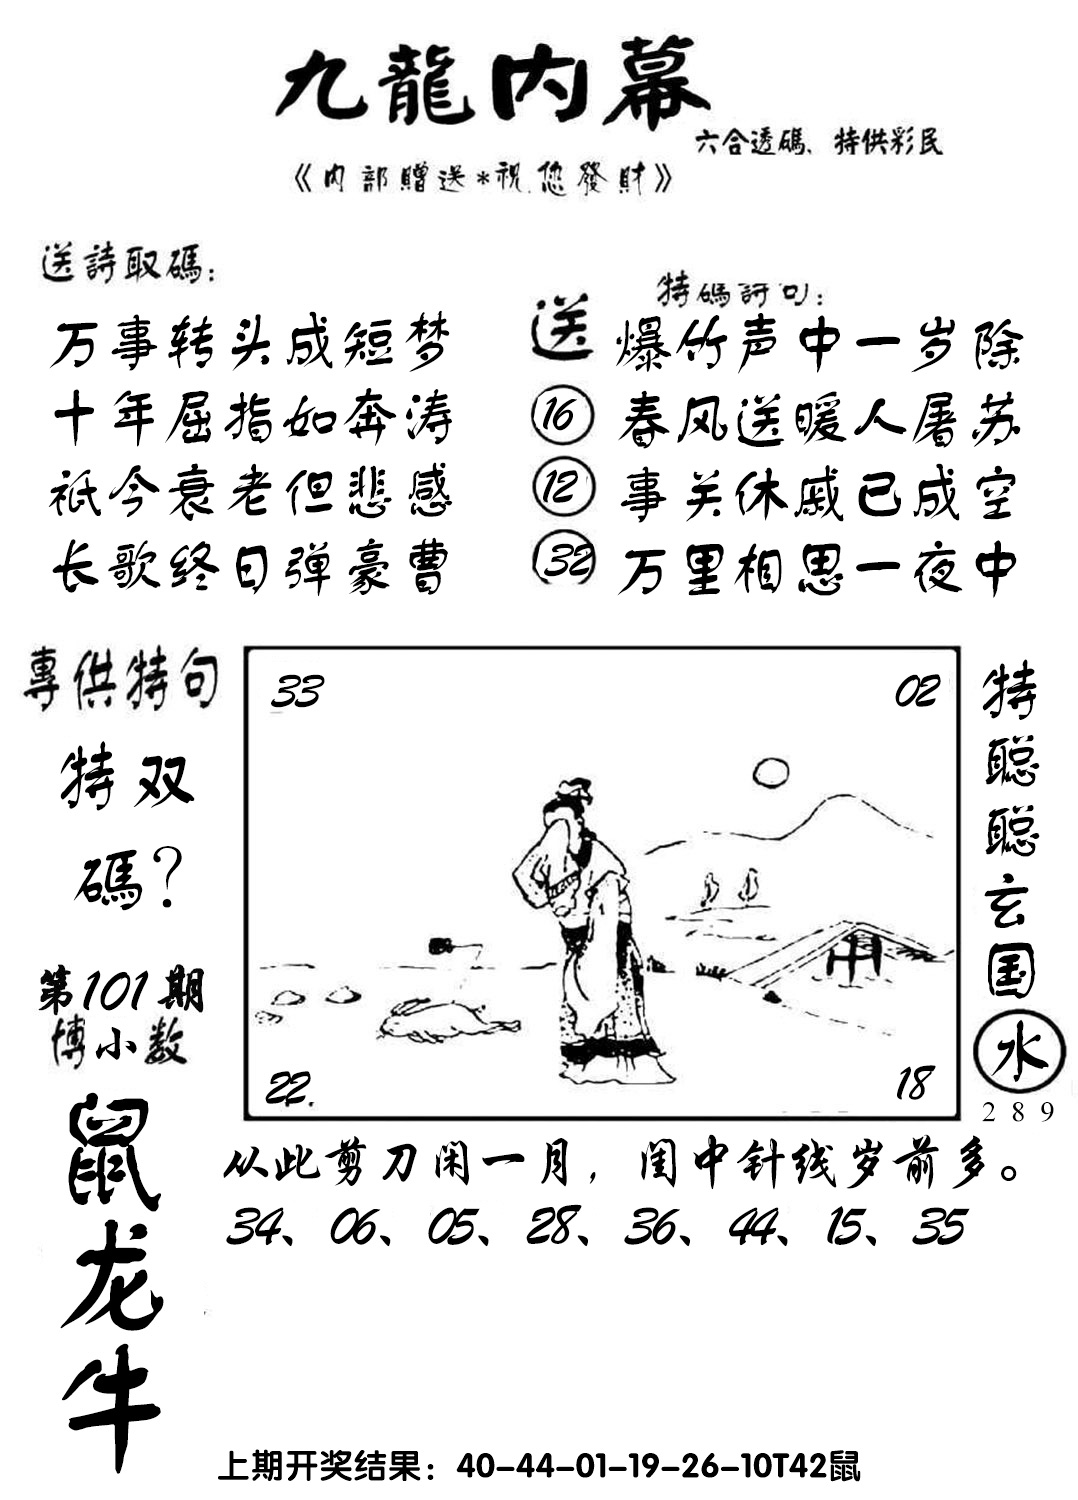 九龍内幕
六合透碼、特供彩民
《内部贈送*祝您發財》
送詩取碼：
万事转头成短梦
十年屈指如奔涛
祇今衰老但悲感
长歌终日弹豪曹
特碼詩句：
送
16
12
32
爆竹声中一岁除
春风送暖人屠苏
事关休戚已成空
万里相思一夜中
專供特句
特双
碼？
第101期
博小数
鼠
龙
牛
33
02
22.
18
特聪聪玄国
水
289
从此剪刀闲一月，闺中针线岁前多。
34、06、05、28、36、44、15、35
上期开奖结果：40-44-01-19-26-10T42鼠